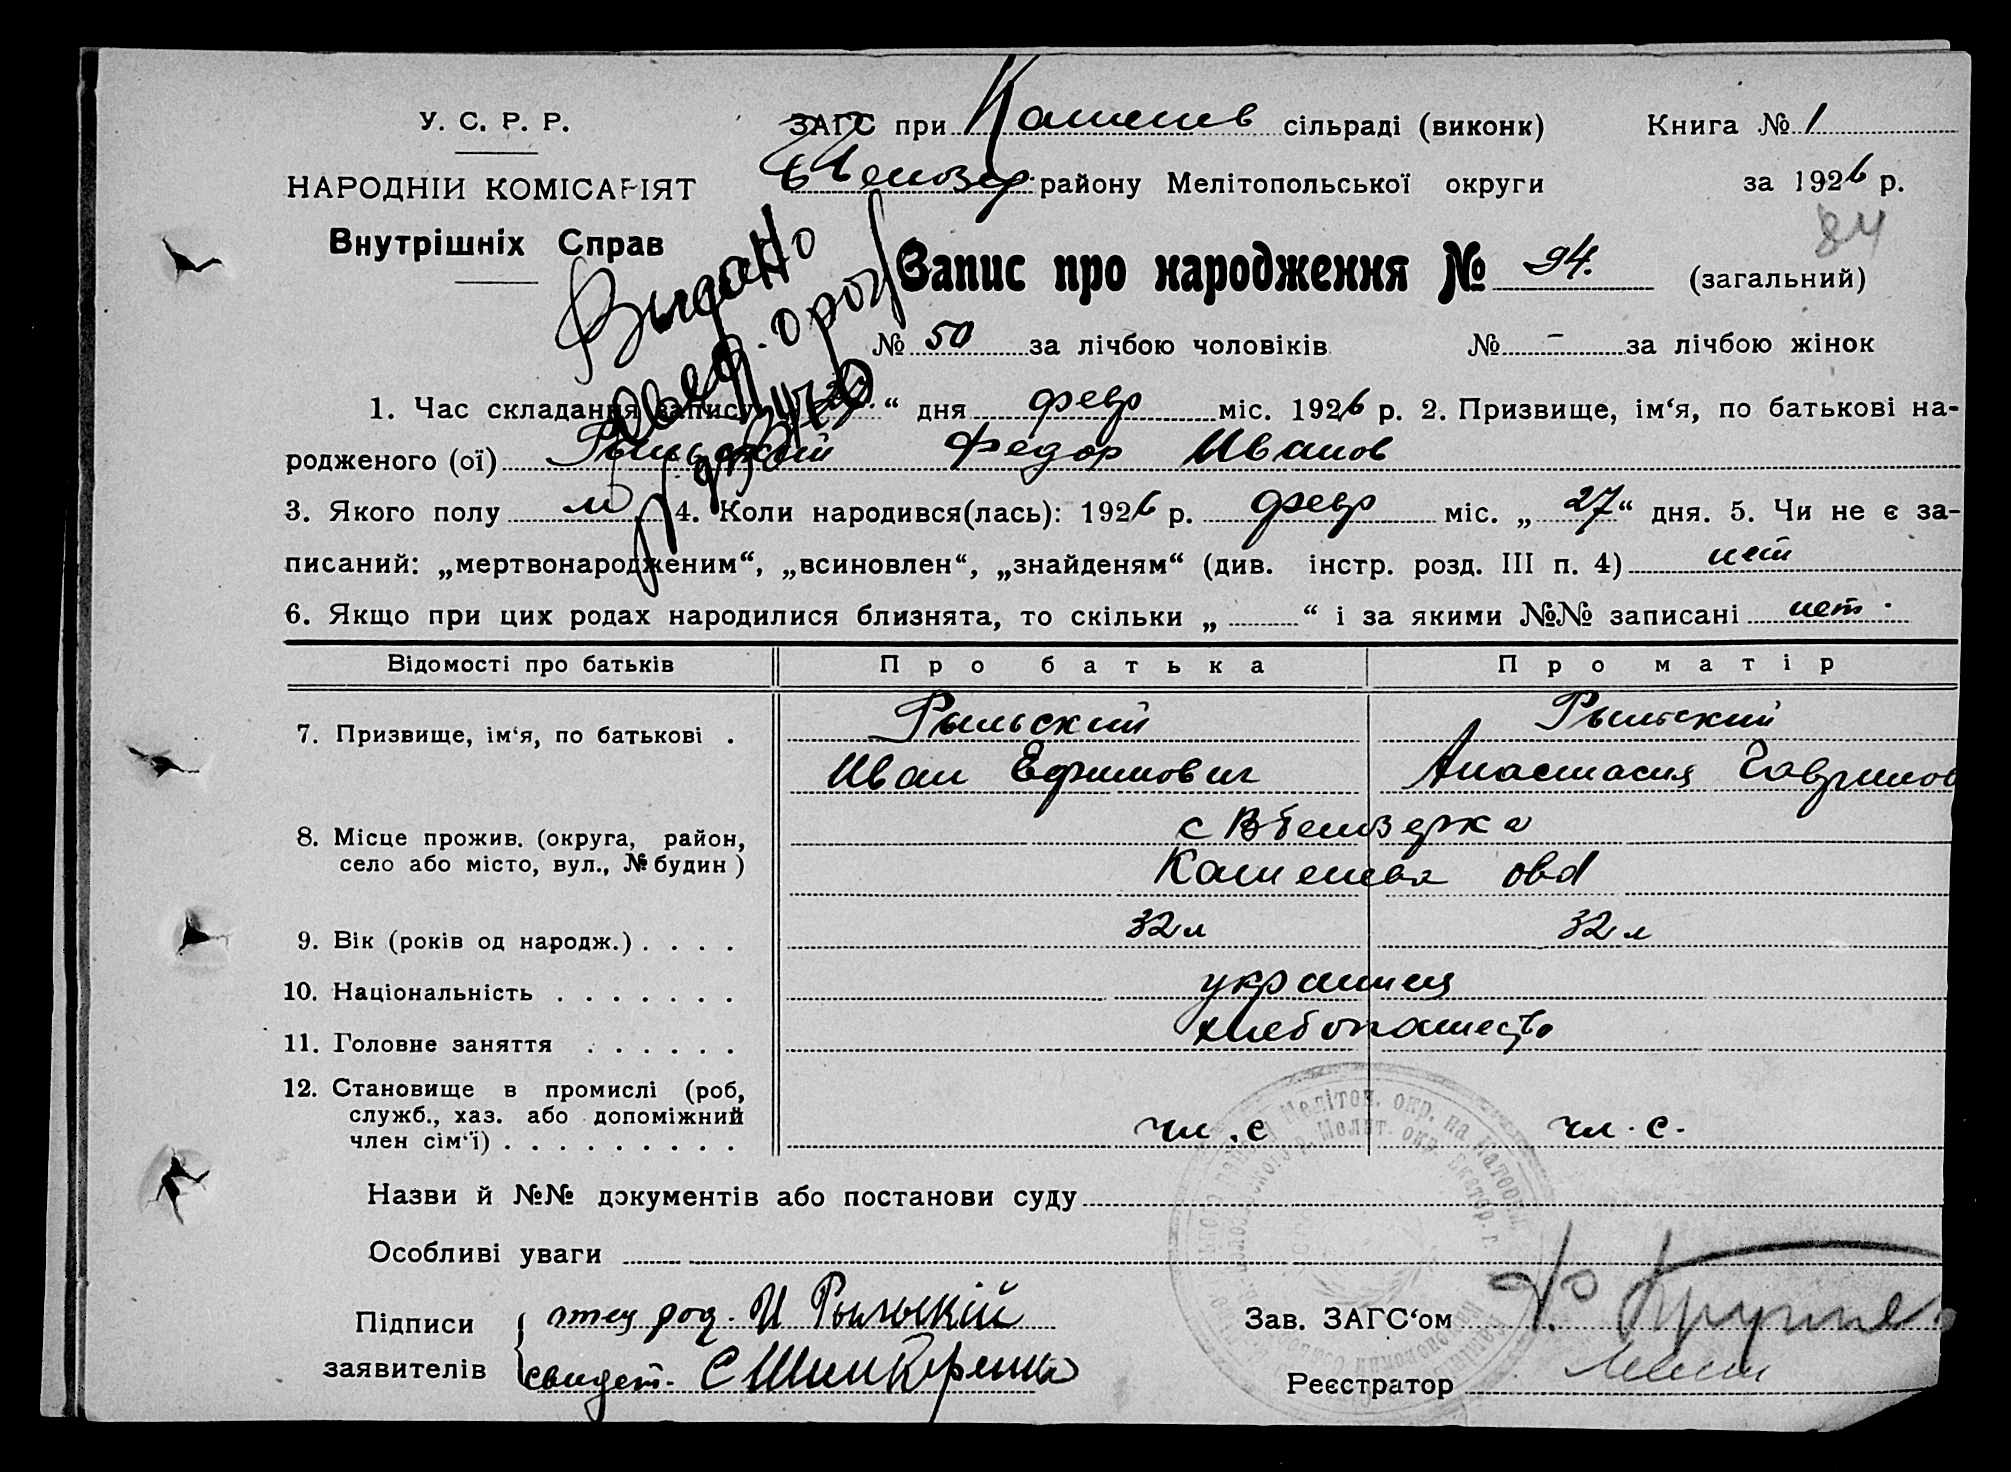 У. С. Р. Р.
НАРОДНІЙ КОМІСАРІЯТ
Внутрішніх Справ
ЗАГС при сільраді (виконк) Книга № 1
району Мелітопольської округи за 1926 р.
84
Запис про народження № 94. (загальний)
№ 50 за лічбою чоловіків № - за лічбою жінок
Выдано
1. Час складання запису „ “ дня февр міс. 1926 р. 2. Призвище, ім‘я, по батькові на-
родженого (ої) Рыльский Федор Иванов
3. Якого полу м 4. Коли народився(лась): 1926 р. февр міс. „ 27 “ дня. 5. Чи не є за-
писаний: „мертвонародженим“, „всиновлен“, „знайденям“ (див. інстр. розд. III п. 4) нет
6. Якщо при цих родах народилися близнята, то скільки „ “ і за якими №№ записані нет.
Відомості про батьків Про батька Про матір
7. Призвище, ім‘я, по батькові . Рыльский Рыльский
Иван Ефимович Анастасия Гаврилов
8. Місце прожив. (округа, район,
село або місто, вул., № будин )
9. Вік (років од народж.) . . . . 32 л 32 л
10. Національність . . . . . . . украинц
11. Головне заняття . . . . . . хлебопашество
12. Становище в промислі (роб,
служб., хаз. або допоміжний
член сім‘ї) . . . . . . . . . чл. с чл. с.
Назви й №№ документів або постанови суду
Особливі уваги
Підписи
заявителів
отец род. И Рыльскій
свидет.
Зав. ЗАГС‘ом
Реєстратор